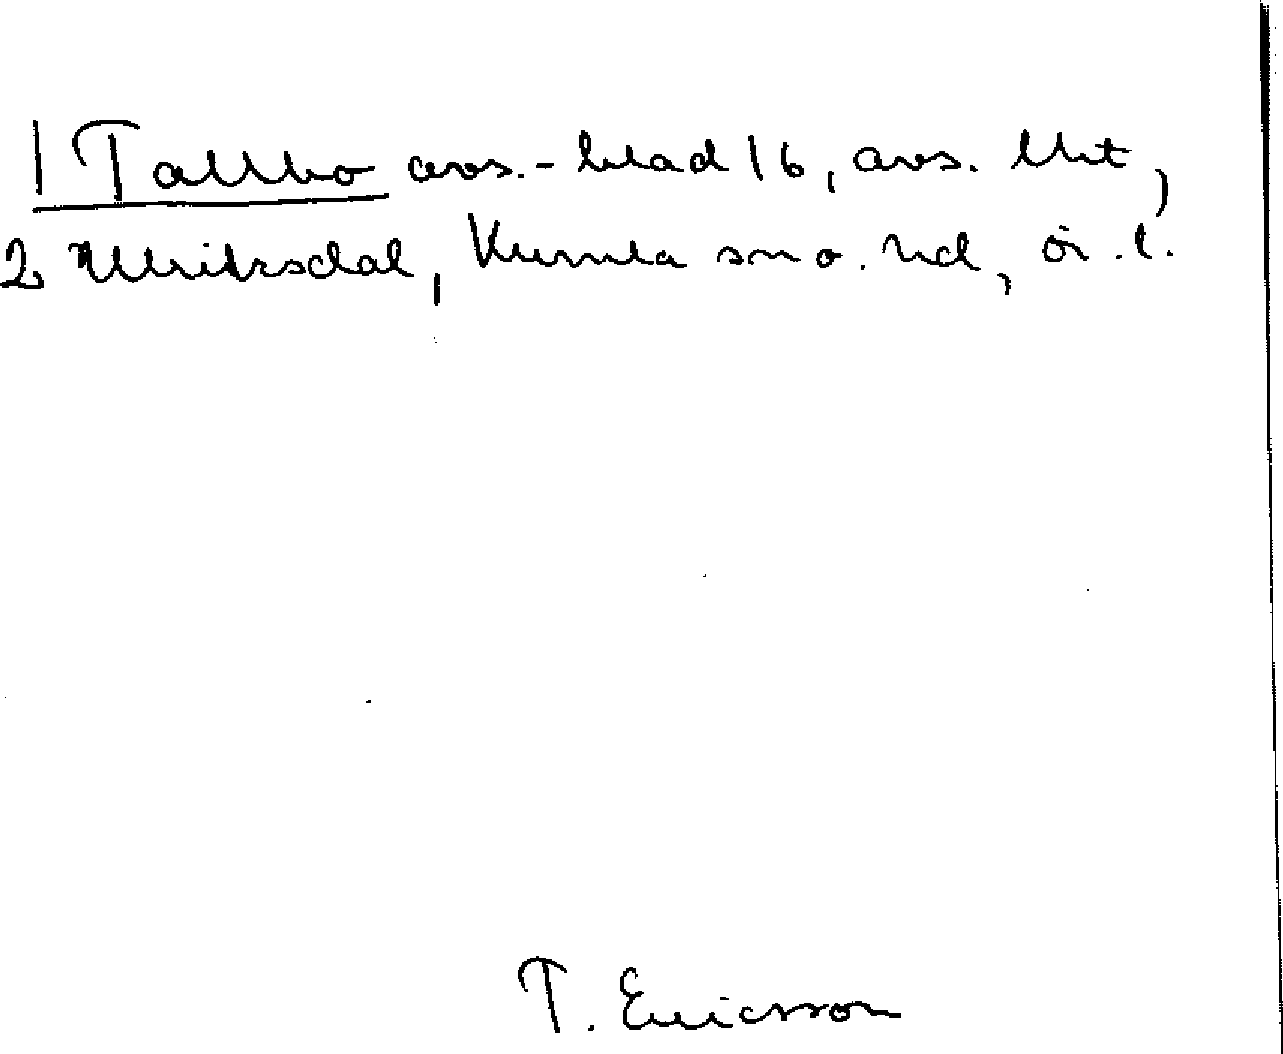 1 Tallbo avs.-blad 16, avs. litt,
2 Ulriksdal, Kumla sn o. hd, ör. l.
T. Ericsson